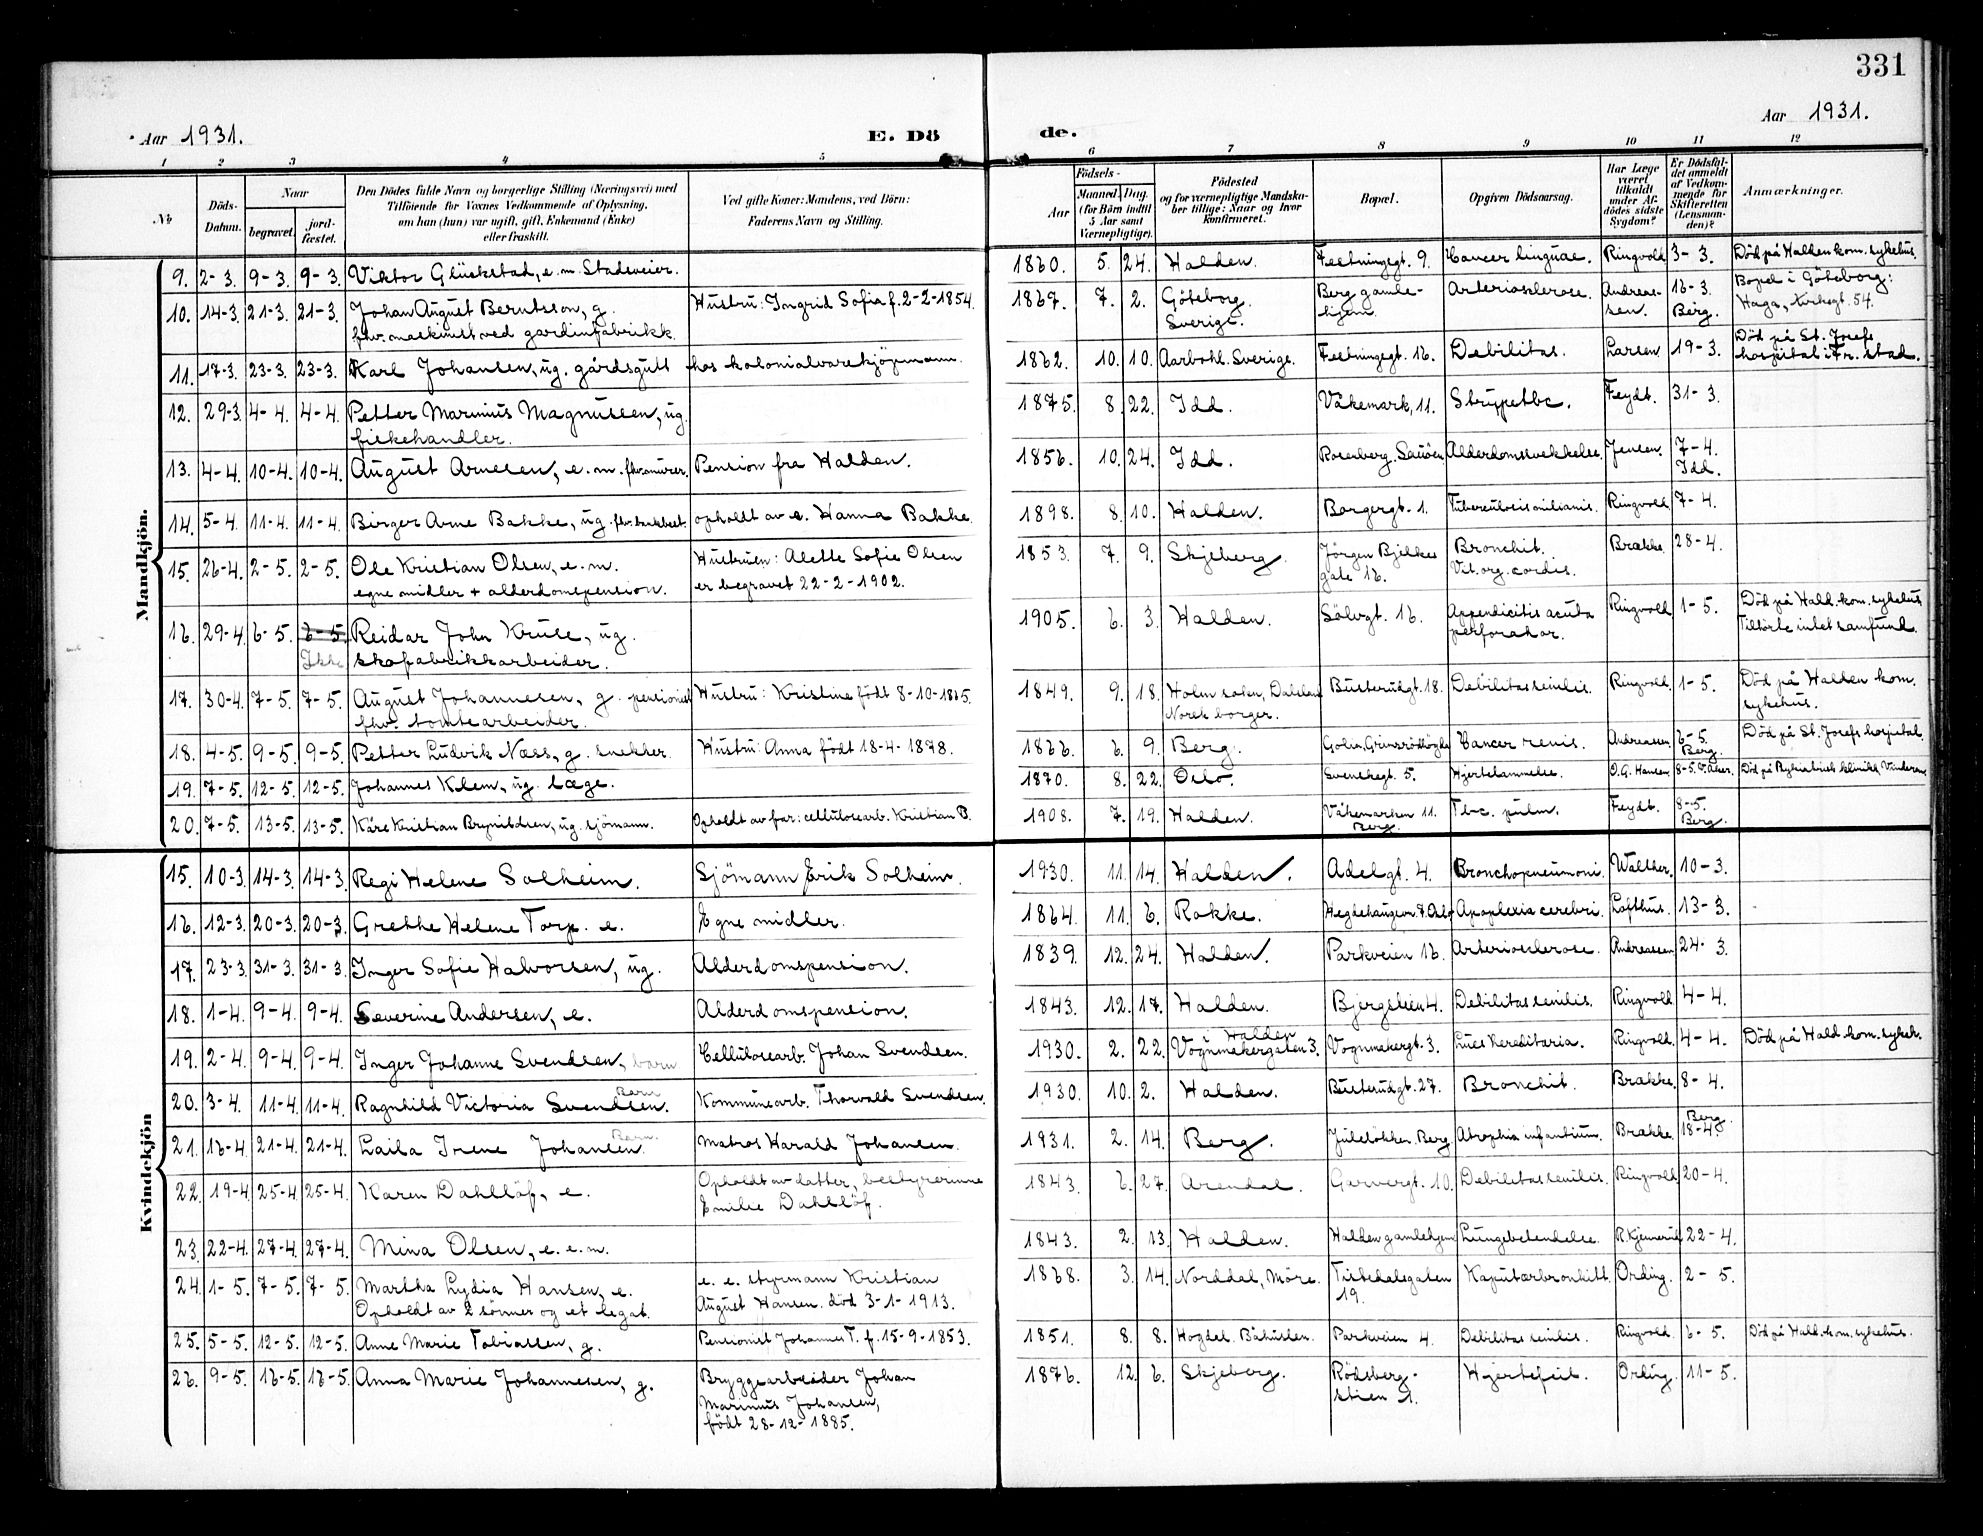 331
Aar 1931.
E. Dö
de.
Aar 1931.
1 2 3 4 5 6 7 8 9 10 11 12
No
Döds-
Datum.
Naar
begravet.
jord-
fæstet.
Den Dödes fulde Navn og borgerlige Stilling (Næringsvei) med
Tilföiende for Voxnes Vedkommende af Oplysning,
om han (hun) var ugift, gift, Enkemand (Enke)
eller fraskilt.
Ved gifte Koner: Mandens, ved Börn:
Faderens Navn og Stilling.
Födsels-
Aar
Maaned. Dag.
(for Börn indtil
5 Aar samt
Værnepligtige).
Födested
og for værnepligtige Mandska-
ber tillige: Naar og hvor
konfirmeret.
Bopæl.
Opgiven Dödsaarsag.
Har Læge
været
tilkaldt
under Af-
dödes sidste
Sygdom?
Er Dödsfal-
det anmeldt
af Vedkom-
mende for
Skifteretten
(Lensman-
den)?
Anmærkninger.
Mandkjön.
9. 2-3. 9-3. 9-3. Viktor Glückstad, e.m. Stadsveier. 1860. 5. 24. Halden. Festningsgt. 9. Cancer linguae. Ringvold 3-3. Död på Halden kom. sykehus.
10. 14-3. 21-3. 21-3. Johan August Berntsson, g. Hustru: Ingrid Sofia f. 2-2-1854. 1867. 7. 2. Göteborg. Berg gamle- Arteriosclerose. Andreas- 16-3. Bopel i Göteborg:
fhv. maskinist ved gardinfabrikk. Sverige. hjem. sen. Berg. Haga, 54.
11. 17-3. 23-3. 23-3. Karl Johansen, ug. gårdsgutt hos kolonialvarekjöpmann. 1862. 10. 10. Sverige. Festningsgt. 16. Debilitas. Larsen 19-3. Död på St. Josefs
hospital i Fr. stad.
12. 29-3. 4-4. 4-4. Petter Marinius Magnussen, ug. 1875. 8. 22. Idd. Våkemark, 11. Strypetbc. Feydt. 31-3.
fiskehandler.
13. 4-4. 10-4. 10-4. August Arnesen, e.m. fhv. murer. Pension fra Halden. 1856. 10. 24. Idd. Rosenberg. Sauöen. Alderdomssvekkelse. Jensen. 7-4.
Idd.
14. 5-4. 11-4. 11-4. Birger Arne Bakke, ug. fhv. bankbest. opholdt av e. Hanna Bakke. 1898. 8. 10. Halden. Borgergt. 1. Tuberculosis miliaris. Ringvold 7-4.
15. 26-4. 2-5. 2-5. Ole Kristian Olsen, e.m. Hustruen: Alette Sofie Olsen 1853. 7. 9. Skjeberg Jörgen Bjelkes Bronchit. Brække. 28-4.
egne midler + alderdomspension. er begravet 22-2-1902. gate 16. Vit. org. cordis.
16. 29-4. 6-5. 6-5. Reidar John Kruse, ug. 1905. 6. 3. Halden. Sölvgt. 16. Appendicitis acuta Ringvold 1-5. Död på Hald. kom. sykehus
Ikke skofabrikkarbeider. perforator. Tilhörte intet samfund.
17. 30-4. 7-5. 7-5. August Johannesen, g. pensionist Hustru: Kristine födt 8-10-1865. 1849. 9. 18. Holm sokn, Dalsland Busterudgt. 18. Debilitas senilis. Ringvold. 1-5. Död på Halden kom.
fhv. tomtearbeider. Norsk borger. sykehus.
18. 4-5. 9-5. 9-5. Petter Ludvik Næss, g. snekker. Hustru: Anna födt 18-4-1878. 1866. 6. 9. Berg. Cancer renis. Andreassen 6-5. Död på St. Josefs hospital.
Berg.
19. 7-5. 12-5. 12-5. Johannes Klem, ug. læge. 1870. 8. 22. Oslo. Svenskegt. 5. Hjertelammelse. O.G. Hansen 8-5. V. Aker. Död på Psykiatriske klinikk Vinderen
20. 7-5. 13-5. 13-5. Kåre Kristian Brynildsen, ug. sjömann. Opholdt av far: cellulosearb. Kristian B. 1908. 7. 19. Halden. Våkemarken 11. Tbc. pulm. Feydt. 8-5.
Berg. Berg.
Kvindekjön
15. 10-3. 14-3. 14-3. Regi Helene Solheim. Sjömann Erik Solheim. 1930. 11. 14. Halden. Adelgt. 4. Bronchopneumoni. Walther. 10-3.
16. 12-3. 20-3. 20-3. Grethe Helene Torp. e. Egne midler. 1864. 11. 6. Rokke. Hegdehaugsvn. 7. Oslo Apoplexia cerebri. Lofthus. 13-3.
17. 23-3. 31-3. 31-3. Inger Sofie Halvorsen, ug. Alderdomspension. 1839. 12. 24. Halden. Parkveien 16. Arteriosclerose. Andreassen 24-3.
18. 1-4. 9-4. 9-4. Severine Andersen, e. Alderdomspension. 1843. 12. 17. Halden. Bjergstien 4. Debilitas senilis. Ringvold. 4-4.
19. 2-4. 9-4. 9-4. Inger Johanne Svendsen, barn Cellulosearb. Johan Svendsen. 1930. 2. 22. Halden Vognmakergaten 3. Vognmakergt. 3. Lues hereditaria. Ringvold. 4-4. Död på Hald. kom. sykeh.
20. 3-4. 11-4. 11-4. Ragnhild Victoria Svendsen. Barn Kommunearb. Thorvald Svendsen. 1930. 10. 2. Halden. Busterudgt. 27. Bronchit. Brække. 8-4.
21. 16-4. 21-4. 21-4. Laila Irene Johansen. Barn. Matros Harald Johansen. 1931. 2. 14. Berg. Juleløkken. Berg Atrophia infantium. Brække. Berg 18-4.
22. 19-4. 25-4. 25-4. Karen Dahllöf, e. Opholdt av datter, bestyrerinne 1843. 6. 27. Arendal. Garvergt. 10. Debilitas senilis. Ringvold 20-4.
Emilie Dahllöf.
23. 22-4. 27-4. 27-4. Mina Olsen, e.e.m. 1843. 2. 13. Halden. Halden gamlehjem Lungebetendelse. R. Kjennerud 22-4.
24. 1-5. 7-5. 7-5. Martha Lydia Hansen, e. e. e. styrmann Kristian 1868. 3. 14. Norddal, Möre. Tistedalsgaten Kapillærbronkitt. Ording. 2-5.
Opholdt av 2 sönner og et legat. August Hansen. död 3-1-1913. 19.
25. 5-5. 12-5. 12-5. Anne Marie Tobiassen, g. Pensionist Johannes T. f. 15-9-1853. 1851. 8. 8. Hogdal. Båhuslen. Parkveien 4. Debilitas senilis. Ringvold. 6-5. Död på Hald. kom. sykehus.
26. 9-5. 16-5. 16-5. Anna Marie Johannesen, g. Bryggearbeider Johan 1876. 12. 6. Skjeberg. Rödsberg- Hjertefeil. Ording. 11-5.
Marinus Johansen, stien 1.
födt 28-12-1885.